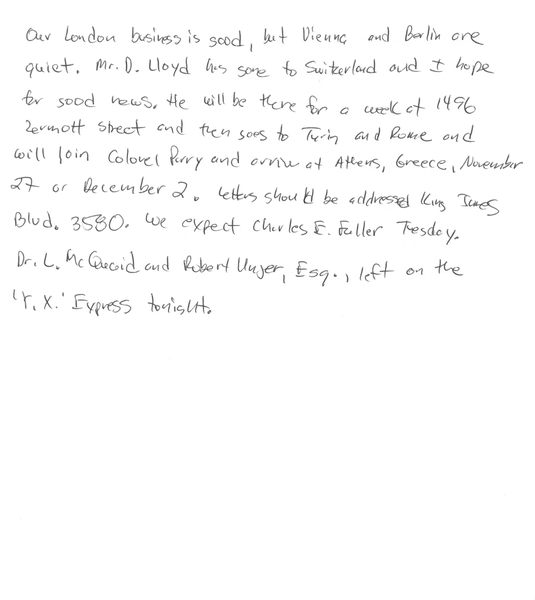 Our London business is good, but Vienna and Berlin are
quiet. Mr. D. Lloyd has gone to Switzerland and I hope
for good news. He will be there for a week at 1496
Zermott Street and then goes to Turin and Rome and
will join Colonel Parry and arrive at Athens, Greece, November
27 or December 2. Letters should be addressed King James
Blvd. 3580. We expect Charles E. Fuller Tuesday.
Dr. L. McQuaid and Robert Unger, Esq., left on the
'Y. X.' Express tonight.